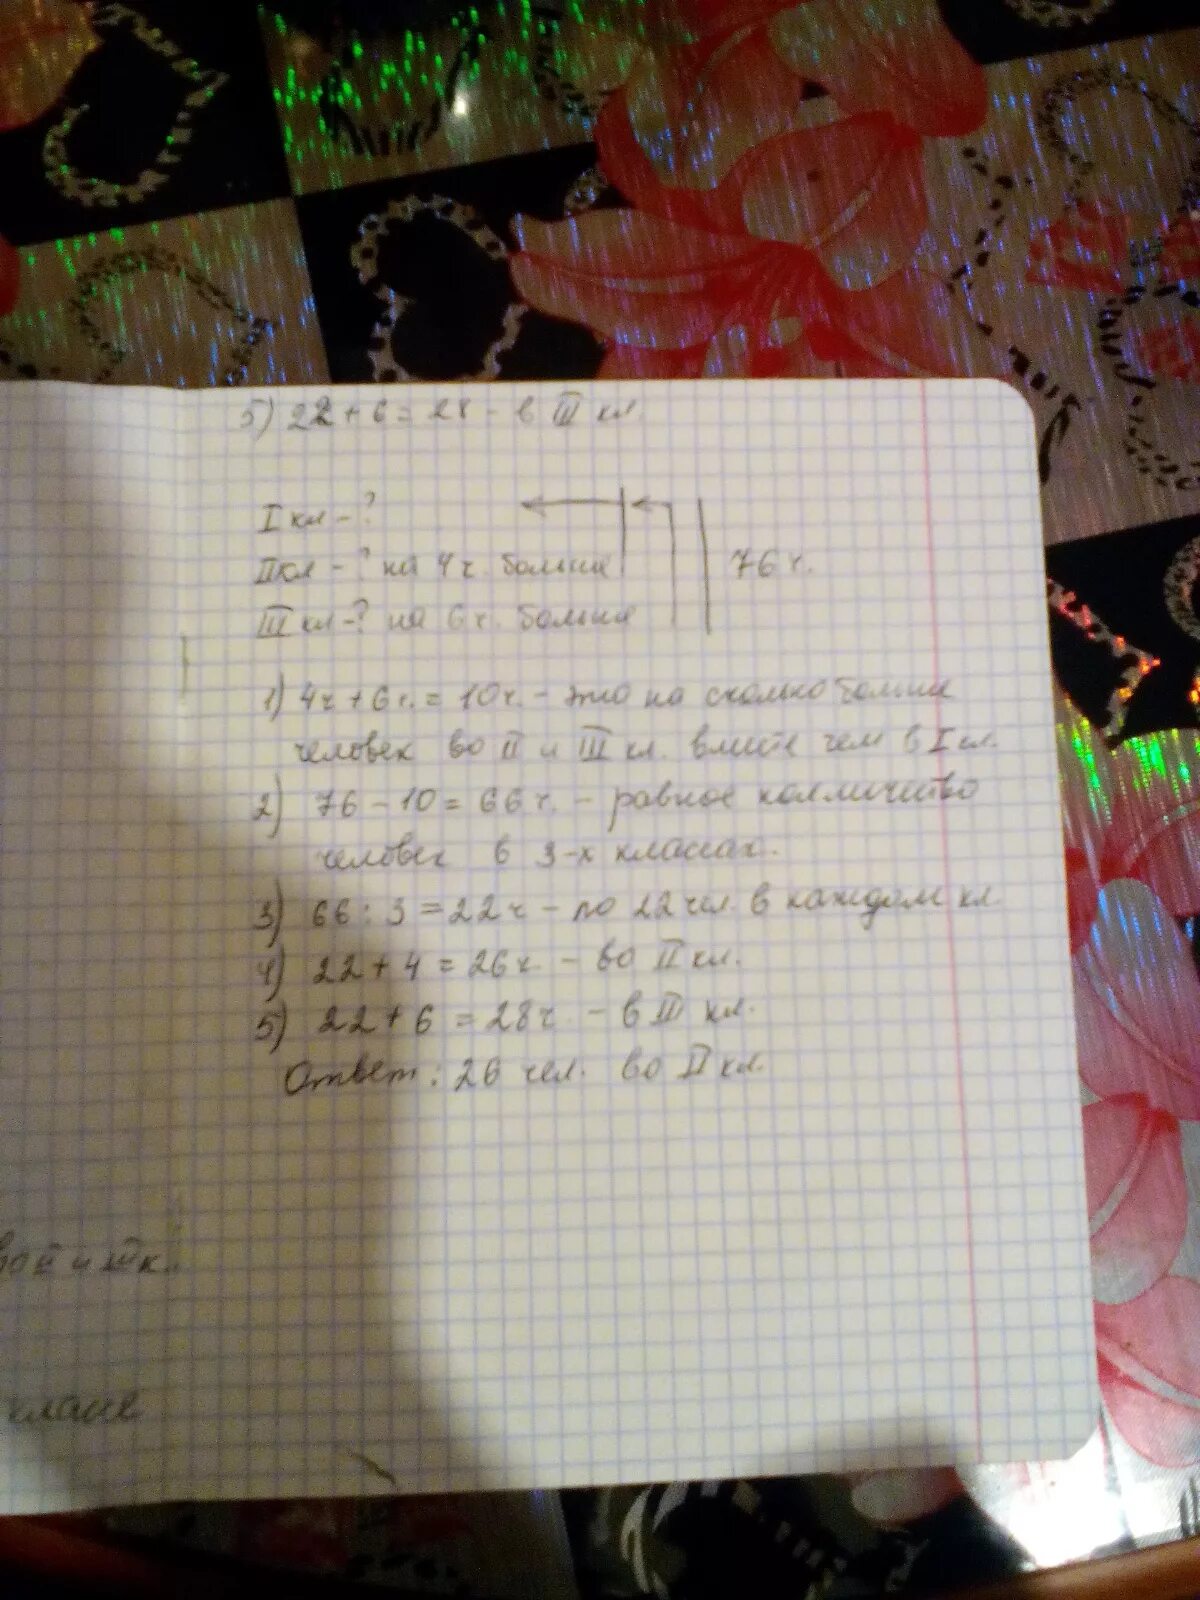 5) 22 + 6 = 28 - в III кл.
I кл - ?
II кл - ? на 4 ч. больше
76 ч.
III кл - ? на 6 ч. больше
1) 4ч + 6ч. = 10ч. - это на сколько больше
человек во II и III кл. вместе чем в I кл.
2) 76 - 10 = 66ч. - равное количество
человек в 3-х классах.
3) 66 : 3 = 22ч - по 22 чел. в каждом кл.
4) 22 + 4 = 26ч. - во II кл.
5) 22 + 6 = 28ч. - в III кл.
Ответ: 26 чел. во II кл.
классе